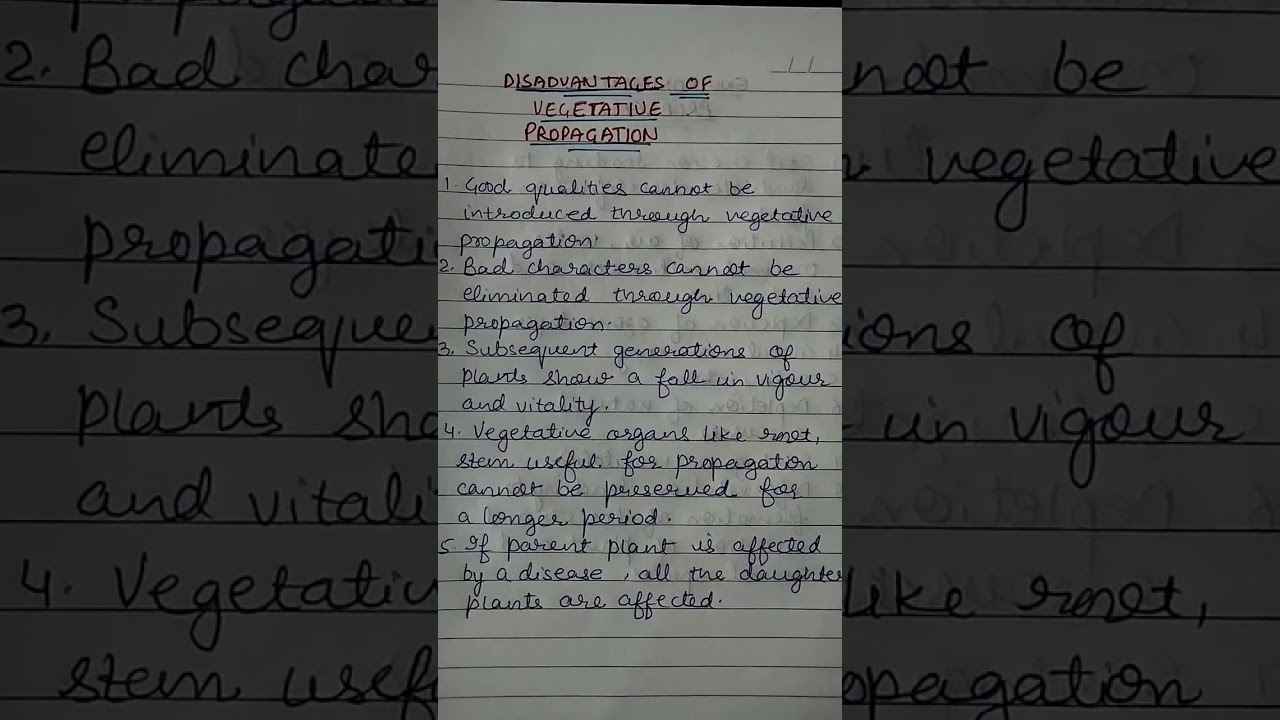 DISADVANTAGES OF
VEGETATIVE
PROPAGATION
1. Good qualities cannot be
introduced through vegetative
propagation.
2. Bad characters cannot be
eliminated through vegetative
propagation.
3. Subsequent generations of
plants show a fall in vigour
and vitality.
4. Vegetative organs like root,
stem useful for propagation
cannot be preserved for
a longer period.
5. If parent plant is affected
by a disease, all the daughter
plants are affected.